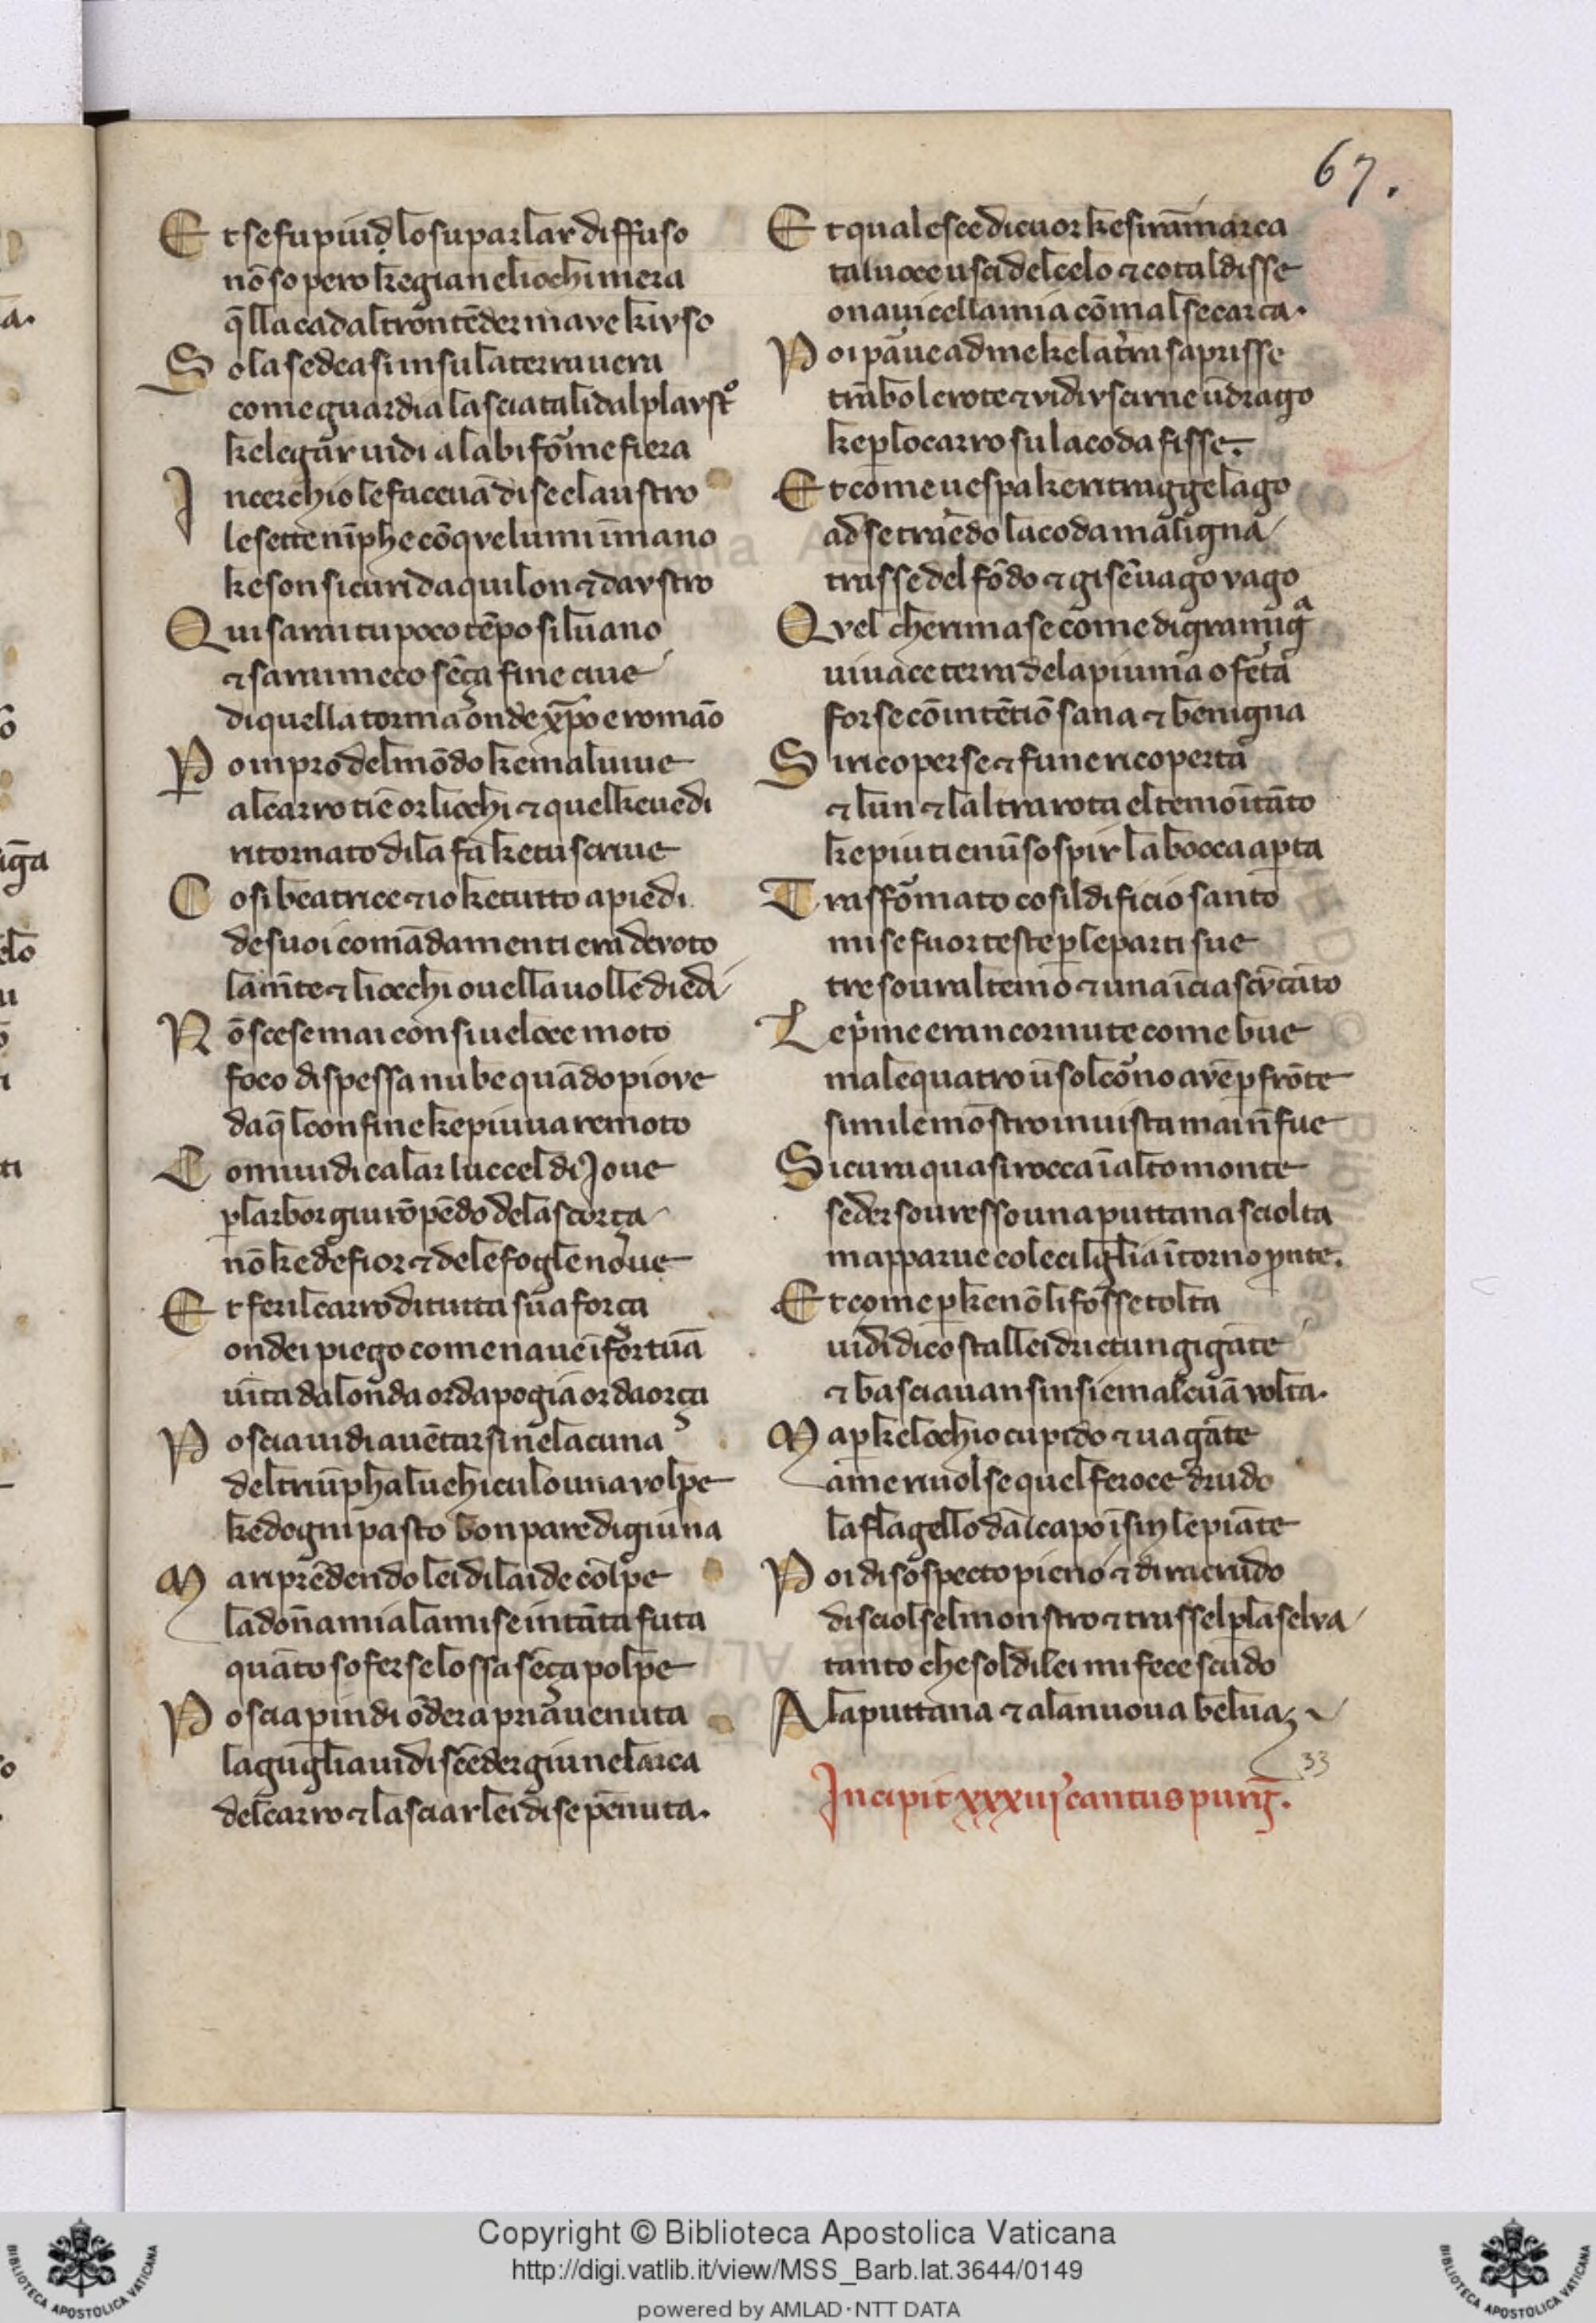 67.
Et se fu piu ḍ lo su parlar diffuso
nō so pero ke gia neliochi mera
q̄lla cad altro n tēder mave kivso
Sola sedeasi in su la terra uera
come guardia lasciata li dal plavst͛o
ke legar uidi a la bifōme fiera
In cerchio le faceuā di se claustro
le sette nīphe cō qvelumi īmano
ke son sicuri daquilon ⁊ davstro
Qui sarai tu poco tēpo siluano
⁊ sarai meco sēça fine ciue
di quella torma onde xp̄o e romāo
Po in pro del mōdo ke mal uiue
al carro tiē or liocchi ⁊ quel ke uedi
ritornato di la fa ke tu scriue
Cosi beatrice ⁊ io ke tutto a piedi
de suoi comādamenti era devoto
la mīte ⁊ liocchi ouella uolle diedi
Nō scese mai con si ueloce moto
foco di spessa nube quādo piove
da q̄l confine ke piu ua remoto
Comiuidi calar luccel di Joue
ꝑ larbor giu rōpēdo de la scorça
nō ke de fior ⁊ de le foglie noue
Et feri l carro di tutta sua força
ondei piego come naue ī fortuā
uita da londa or da pogia or da orça
Poscia uidi auētarsi ne la cuna
del triūphal uehiculo una volpe
ke dogni pasto bon parea digiuna
Ma riprēdendo lei di laide colpe
la don̄a mia la mise in tāta futa
quāto sofferse lossa sēça polpe
Poscia ꝑ indi ōdera pria uenuta
laguglia uidi scēder giu ne larca
del carro ⁊ lasciar lei di se pēnuta.
Et quale sce di cuor ke si rām̄arca
tal uoce usci del celo ⁊ cotal disse
o nauicella mia cō mal se carca.
Poi parue ad me ke la t̄ra saprisse
trābo le rote ⁊ vidi vscirne ū drago
ke ꝑ lo carro su la coda fisse.
Et come uespa ke ritragge lago
ad se traēdo la coda maligna
trasse del fōdo ⁊ gisēn uago vago
Qvel che rimase come di gramigᵃ
uiuace terra de la piuma oferta
forse cō intētiō sana ⁊ benigna
Si ricoperse ⁊ fune ricoperta
⁊ luna ⁊ laltra rota el temo ī tāto
ke piu tiene ū sospir la bocca aꝑta
Trasfōmato cosi l dificio santo
mise fuor teste ꝑ le parti sue
tre soural temo ⁊ una ī ciascū cāto
Le pⁱme eran cornute come bue
ma le quatro ū sol corno avē ꝑ frōte
simile mōstro in uista mai n̄ fue
Sicura quasi rocca ī alto monte
seder souresso una puttana sciolta
mapparue co le ciglia ītorno ꝓnte.
Et come ꝑ ke nō li fosse tolta
uidi di costa allei dritto un gigāte
⁊ basciauansi insieme alcuā volta.
Ma ꝑ ke lochio cupido ⁊ uagāte
a me riuolse quel feroce drudo
la flagello dal capo īsin le piāte
Poi di sospecto pieno ⁊ dira crudo
disciolse l monstro ⁊ trassel ꝑ la selva
tanto che sol di lei mi fece scudo
A la puttana ⁊ a la nuoua belua
33
Incipit xxxiij cantus purḡ.
Copyright © Biblioteca Apostolica Vaticana
http://digi.vatlib.it/view/MSS_Barb.lat.3644/0149
powered by AMLAD·NTT DATA
BIBLIOTECA APOSTOLICA VATICANA
BIBLIOTECA APOSTOLICA VATICANA